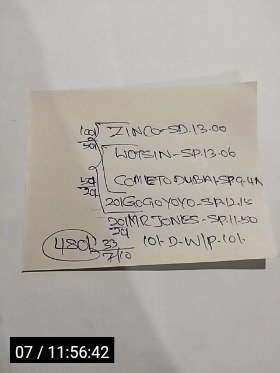 100/50 ZINCO-SP.13.00
HOTSIN-SP.13.06
50/20 COMETODUBAI-SP.9.41
20/GOGOYOYO-SP.12.15
20/20 MR JONES-SP.11.50
480/ 33 10/-D-W/P-10/-
7/10
07 / 11:56:42